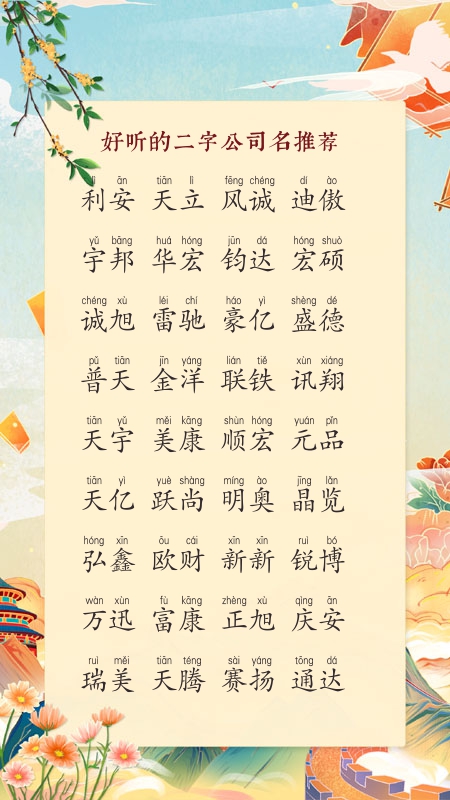 好听的二字公司名推荐
lì ān tiān lì fēng chéng dí ào
利安 天立 风诚 迪傲
yǔ bāng huá hóng jūn dá hóng shuò
宇邦 华宏 钧达 宏硕
chéng xù léi chí háo yì shèng dé
诚旭 雷驰 豪亿 盛德
pǔ tiān jīn yáng lián tiě xùn xiáng
普天 金洋 联铁 讯翔
tiān yǔ měi kāng shùn hóng yuán pǐn
天宇 美康 顺宏 元品
tiān yì yuè shàng míng ào jīng lǎn
天亿 跃尚 明奥 晶览
hóng xīn ōu cái xīn xīn ruì bó
弘鑫 欧财 新新 锐博
wàn xùn fù kāng zhèng xù qìng ān
万迅 富康 正旭 庆安
ruì měi tiān téng sài yáng tōng dá
瑞美 天腾 赛扬 通达